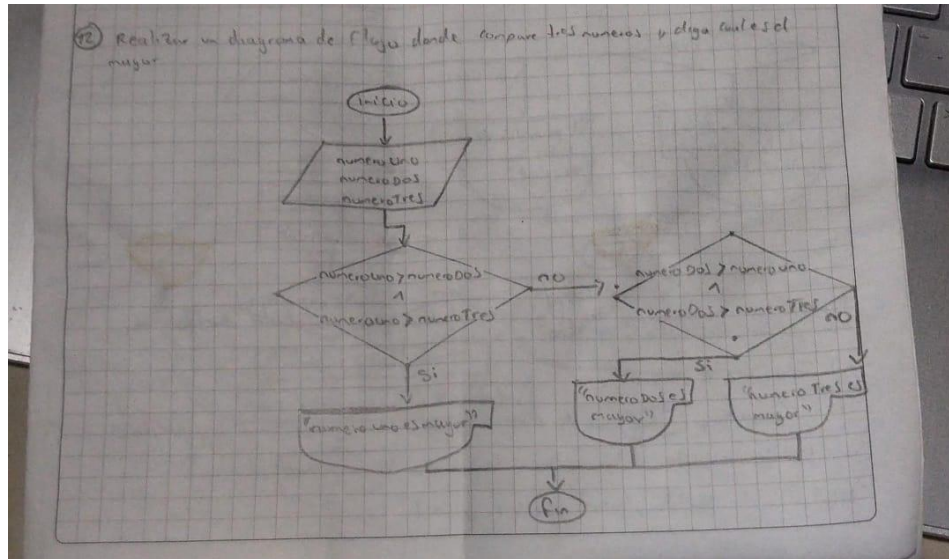 12 Realizar un diagrama de flujo donde compare tres numeros y diga cual es el
mayor
inicio
numeroUno
numeroDos
numeroTres
numeroUno > numeroDos
^
numeroUno > numeroTres
no
numeroDos > numeroUno
^
numeroDos > numeroTres
no
Si
Si
"numeroUno es mayor"
"numeroDos es
mayor"
"numeroTres es
mayor"
fin